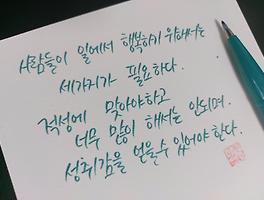 사람들이 일에서 행복하기 위해서는
세가지가 필요하다.
적성에 맞아야하고
너무 많이 해서는 안되며.
성취감을 얻을수 있어야 한다.